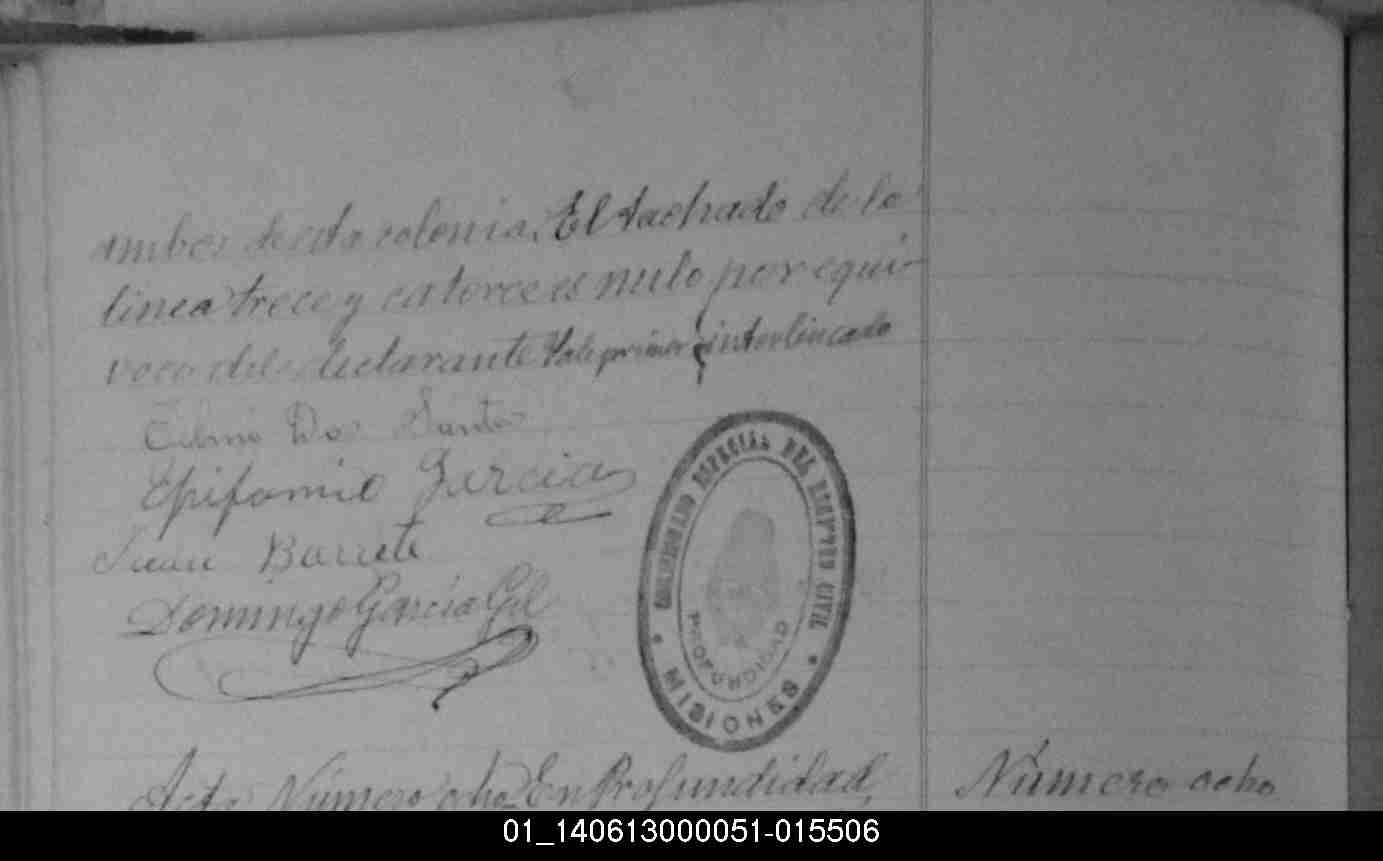 ambos de esta colonia. El tachado de la
linea trece y catorce es nulo por equi-
voco del declarante Vale primer interlineado
Dos Santo
Epifanio Garcia
Juan Barrete
Domingo Garcia Gil
COMISIONADO ESPECIAL DEL REGISTRO CIVIL
PROFUNDIDAD
MISIONES
Acta Número ocho En Profundidad,
Número ocho
01_140613000051-015506